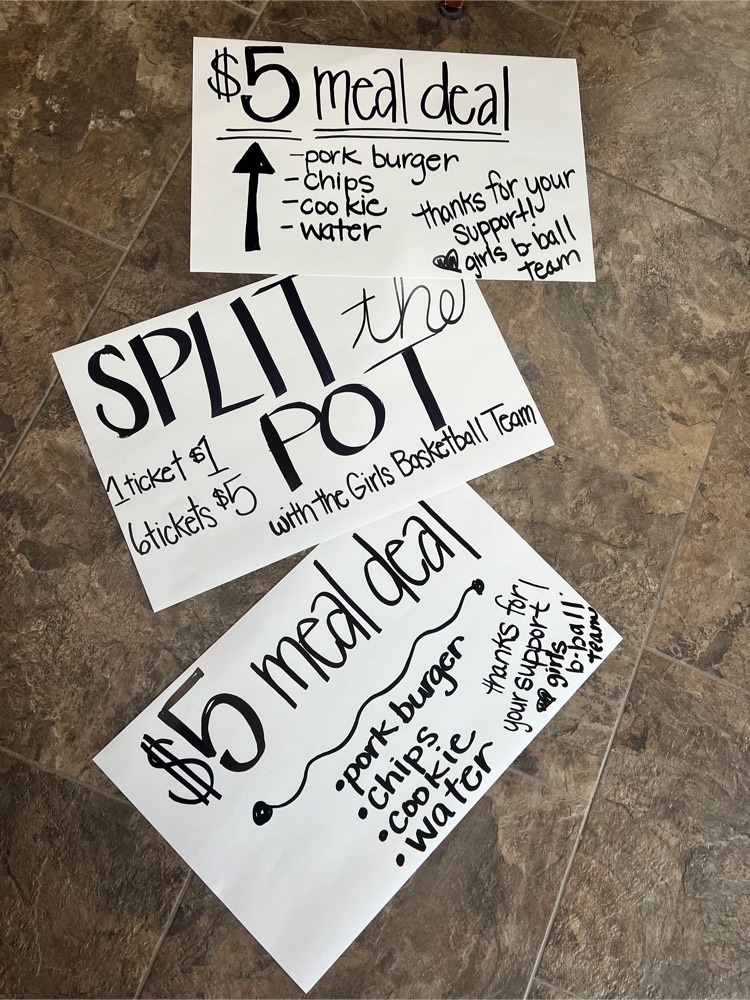 $5 meal deal
-pork burger
-chips
-cookie
-water
thanks for your
support!
girls b-ball
team
SPLIT the
POT
1 ticket $1
6 tickets $5
with the Girls Basketball Team
$5 meal deal
•pork burger
•chips
•cookie
•water
thanks for
your support!
girls
b-ball
team